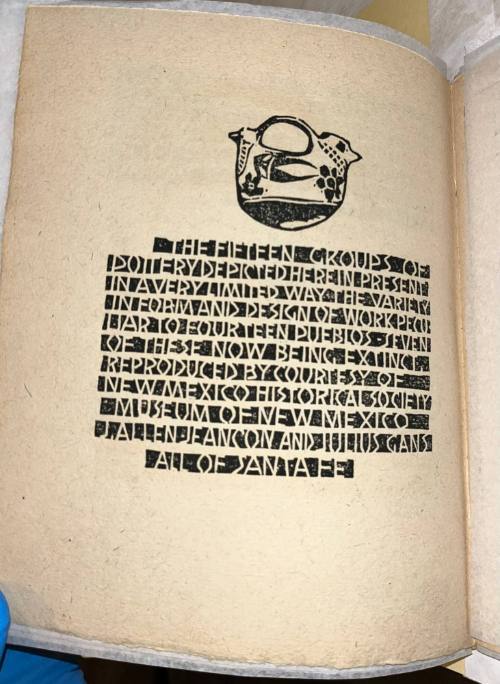 THE FIFTEEN GROUPS OF
POTTERY DEPICTED HEREIN PRESENT
IN A VERY LIMITED WAY THE VARIETY
IN FORM AND DESIGN OF WORK PECU
LIAR TO FOURTEEN PUEBLOS SEVEN
OF THESE NOW BEING EXTINCT.
REPRODUCED BY COURTESY OF
NEW MEXICO HISTORICAL SOCIETY
MUSEUM OF NEW MEXICO
J. ALLEN JEANCON AND JULIUS GANS
ALL OF SANTA FE